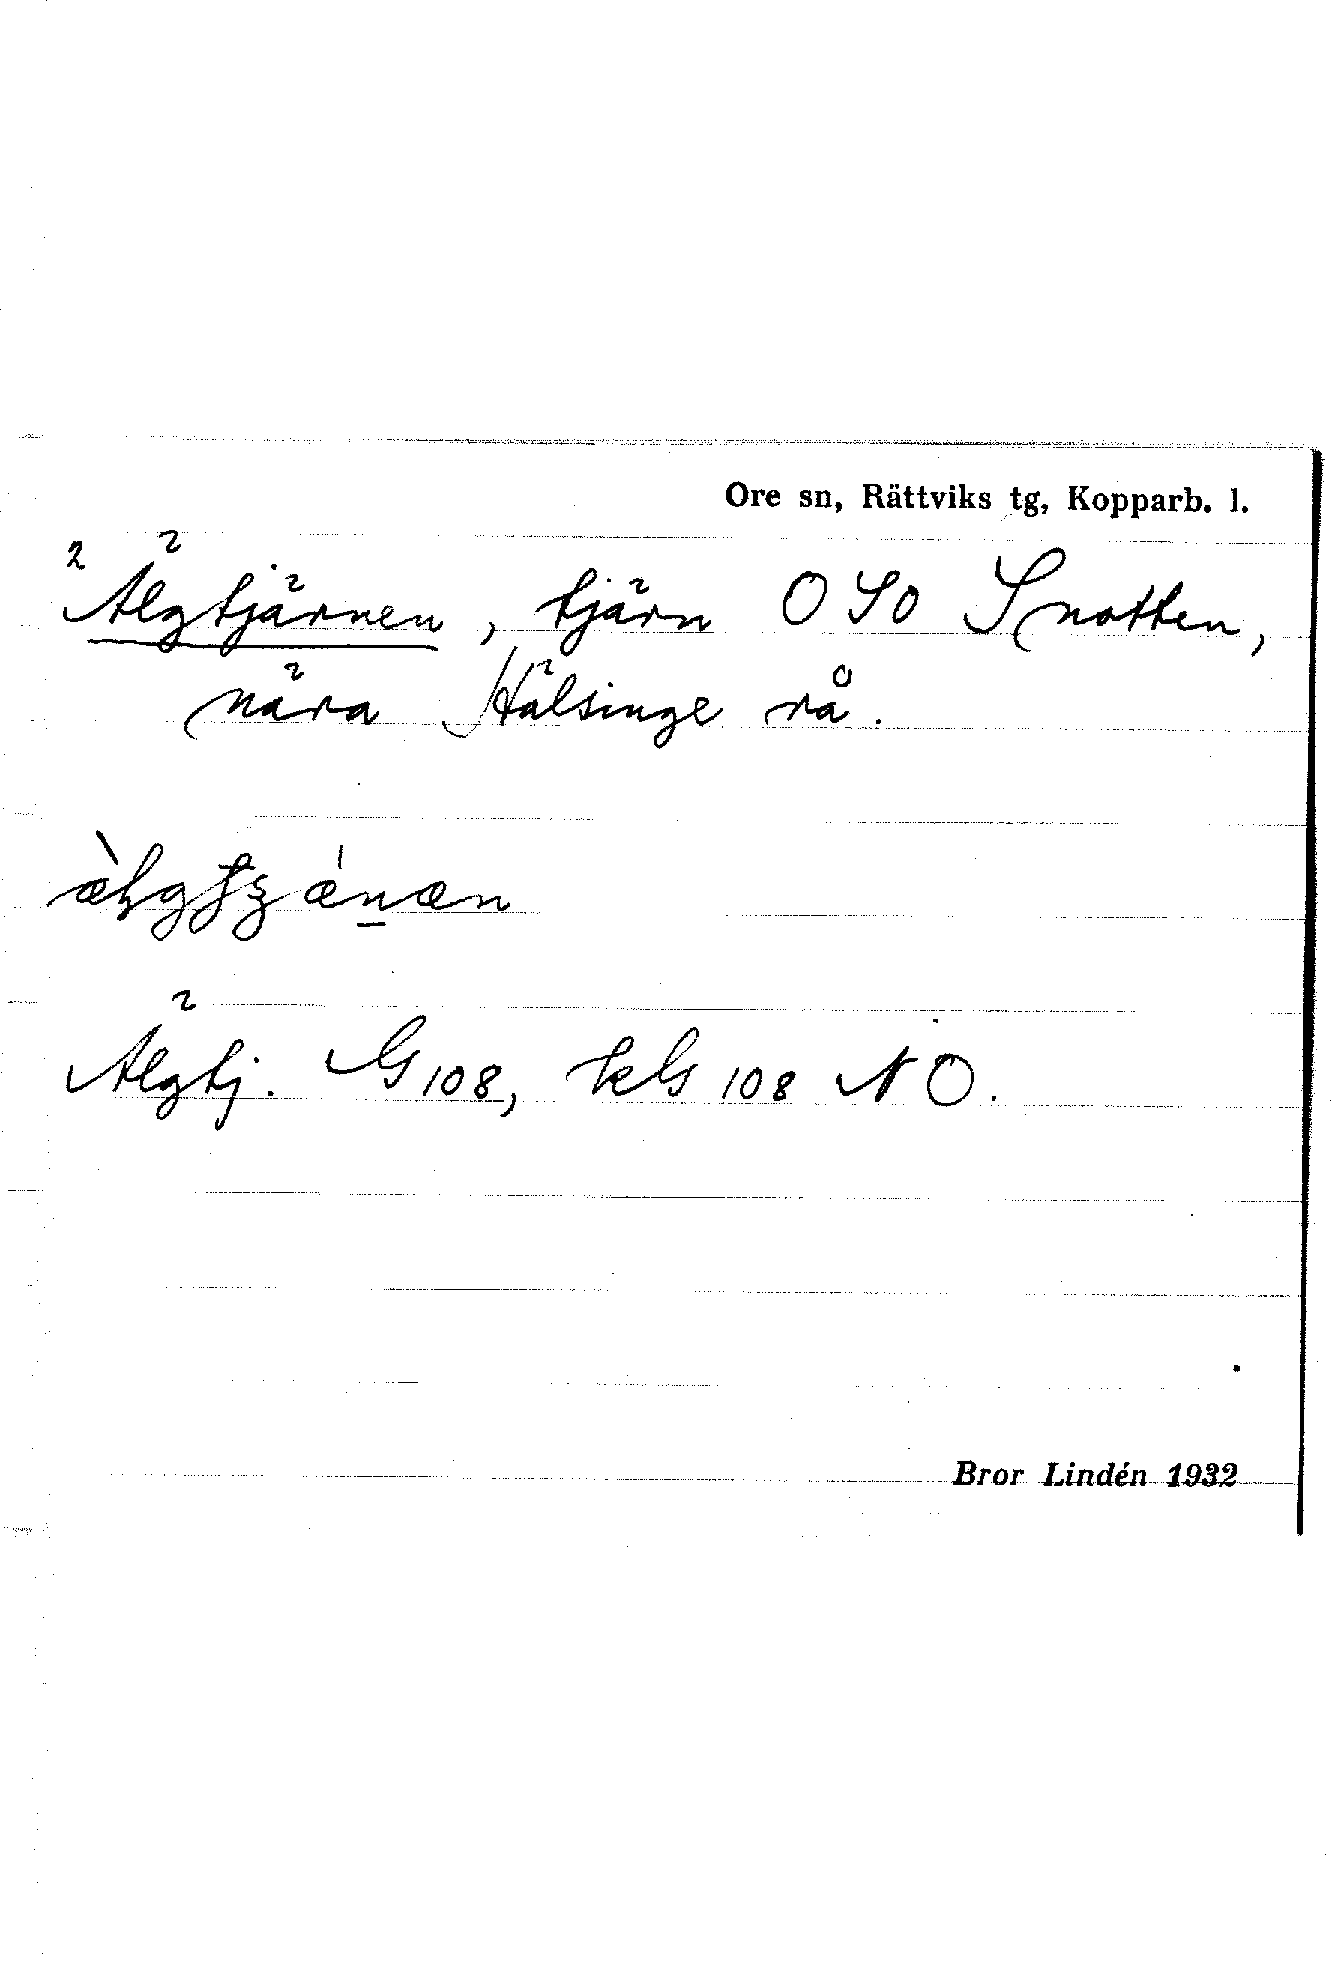 Ore sn, Rättviks tg, Kopparb. l.
2 Älgtjärnen, tjärn OSO Snotten,
nära Hälsinge rå.
Älgtj. G 108, kG 108 NO.
Bror Lindén 1932